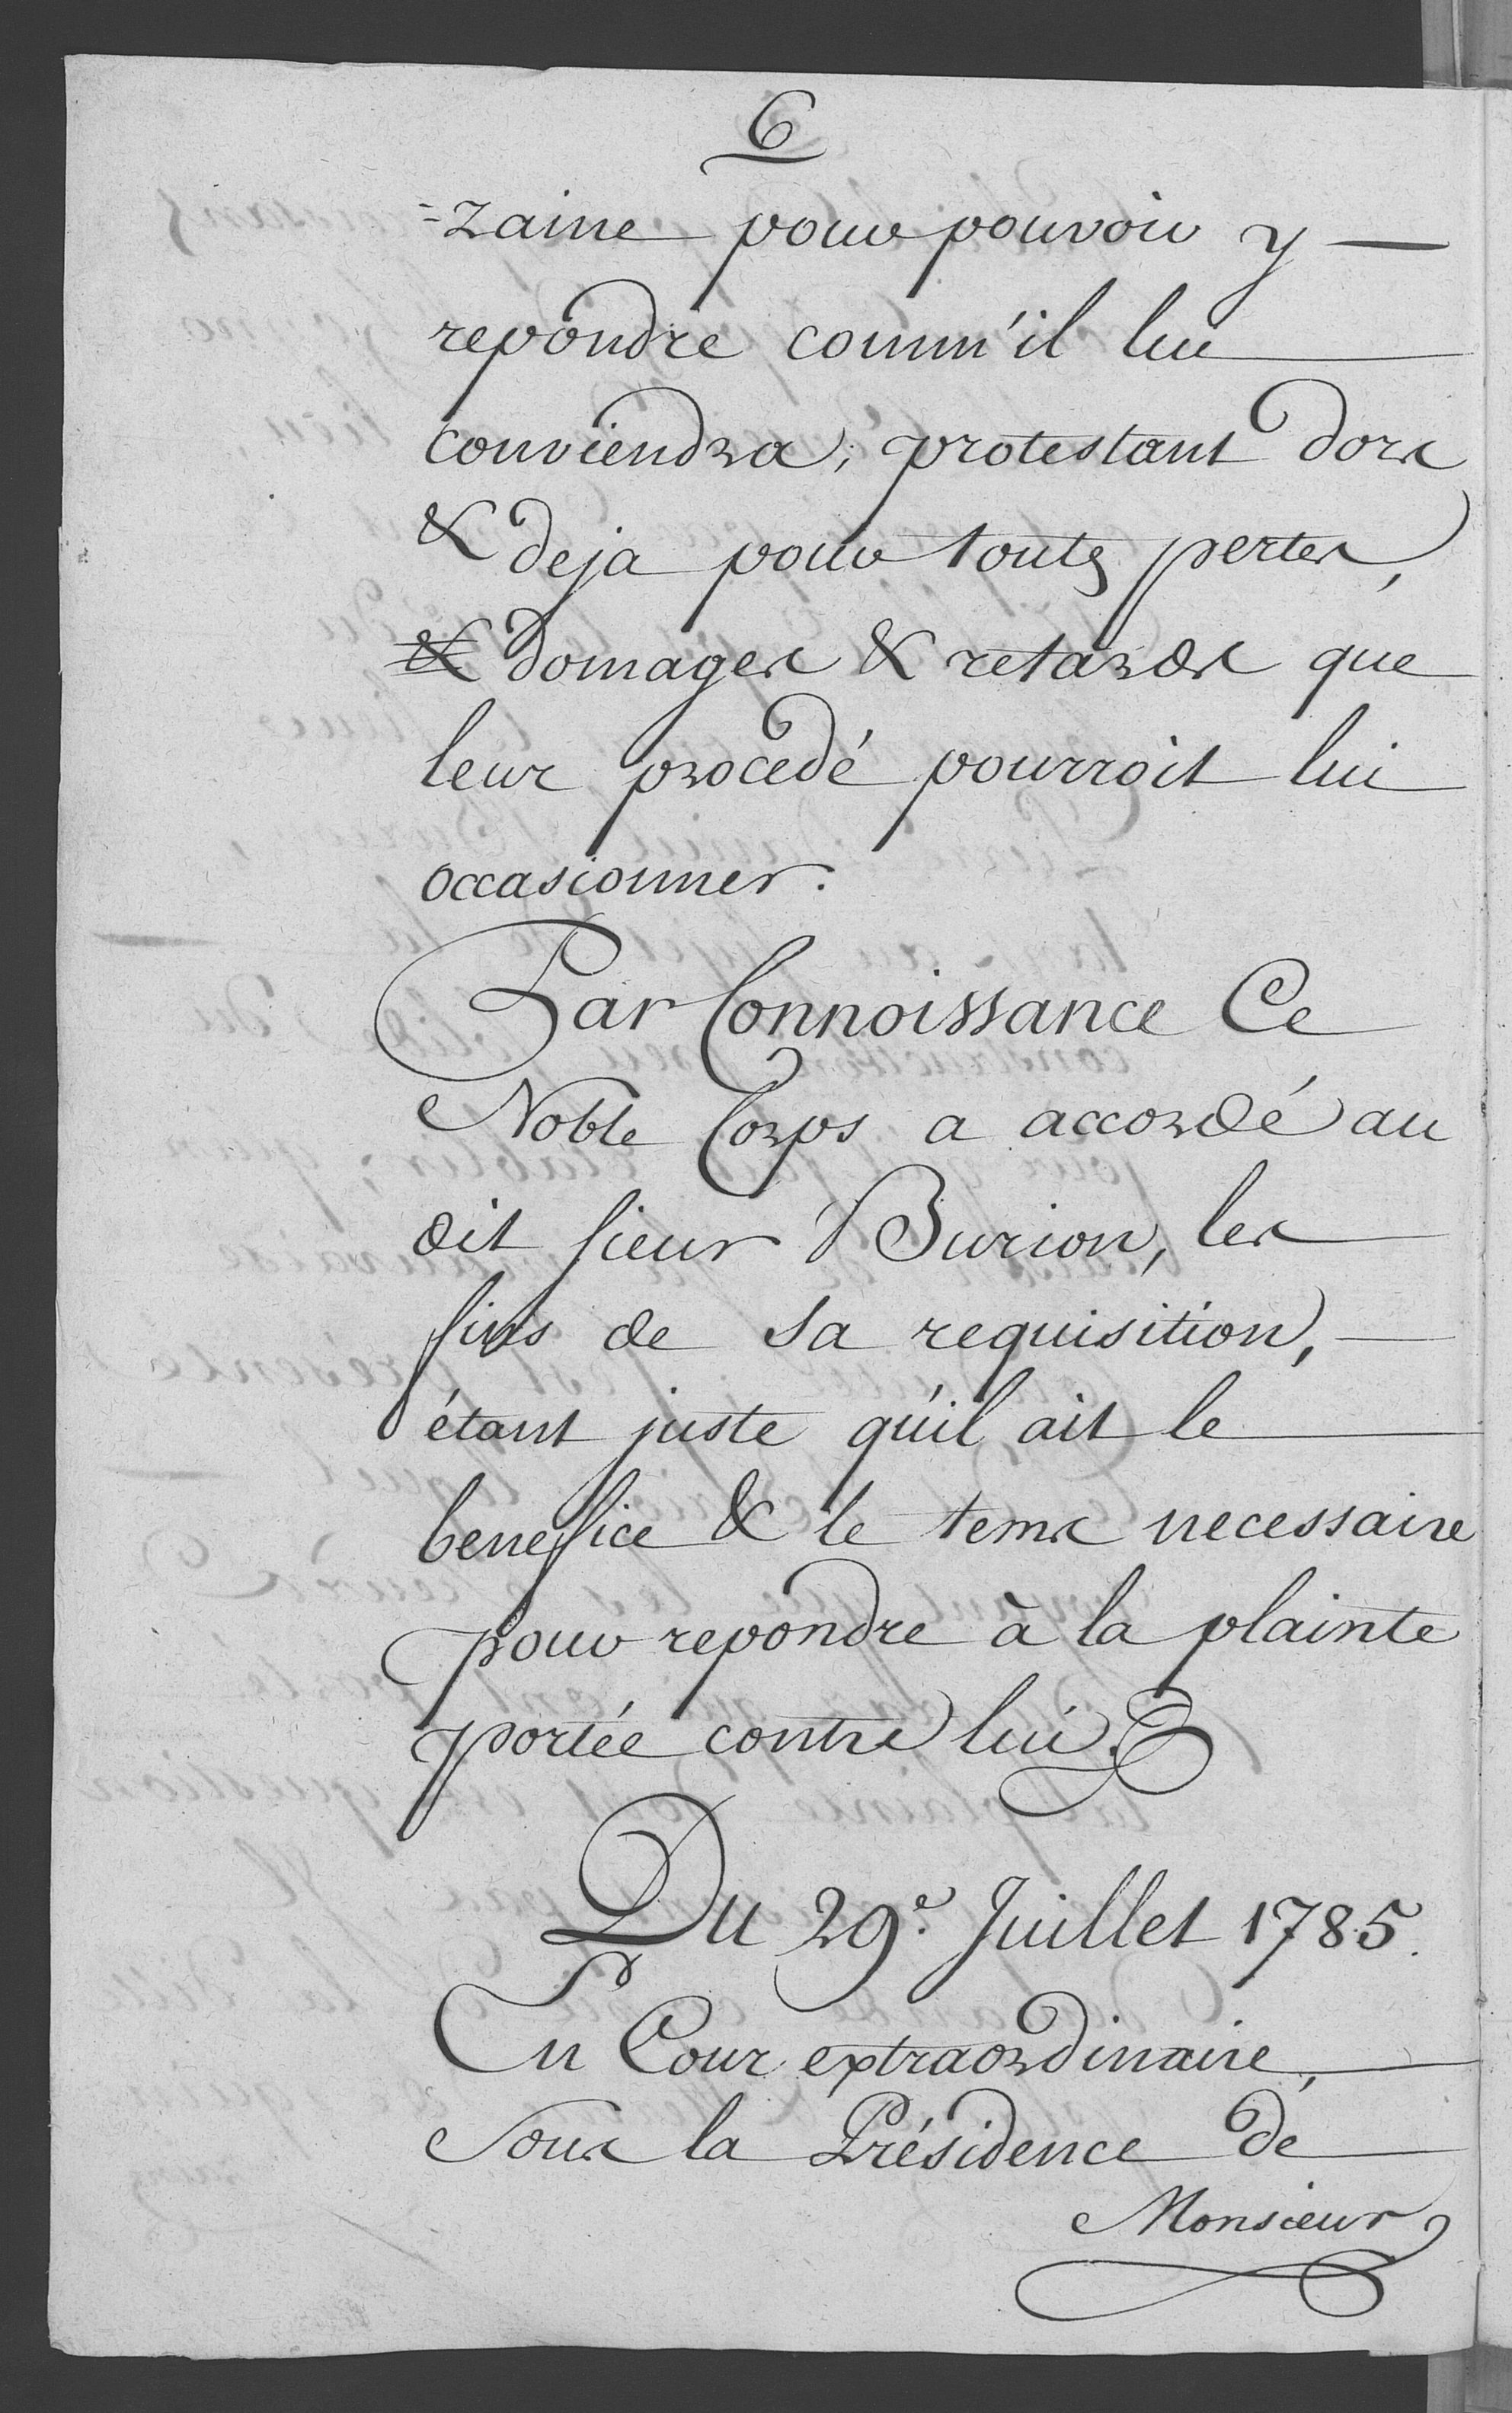 6
=zaine pour pouvoir y —
repondre comm'il lui
conviendra; protestant dors
& deja pour toutes pertes,
& domages & retards que
leur procedé pourroit lui
occasionner.
Par Connoissance Ce
Noble Corps a accordé au
dit sieur Burion, les
fins de sa requisition, —
étant juste qu'il ait le
benefice & le tems necessaire
pour repondre à la plainte
portée contre lui.
Du 29e. Juillet 1785.
En Cour extraordinaire,
Sous la Présidence de
Monsieur